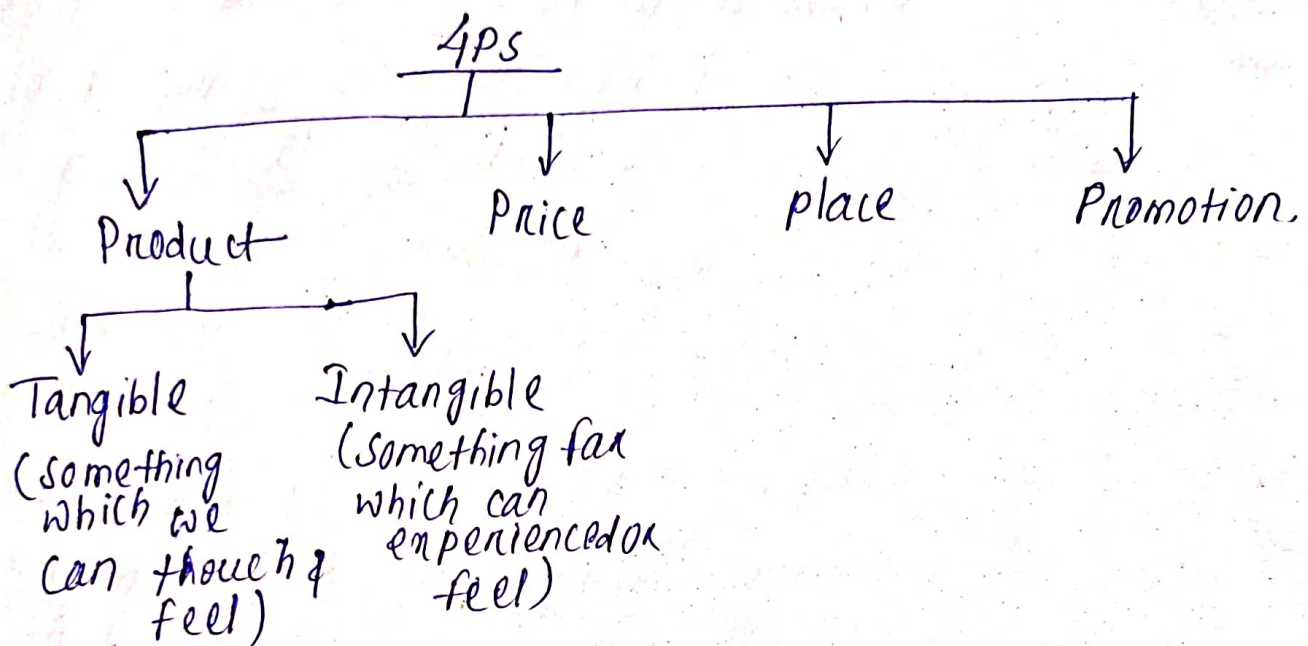 4Ps
Product
Price
place
Promotion.
Tangible
(something
which we
can thouch &
feel)
Intangible
(something far
which can
experienced or
feel)